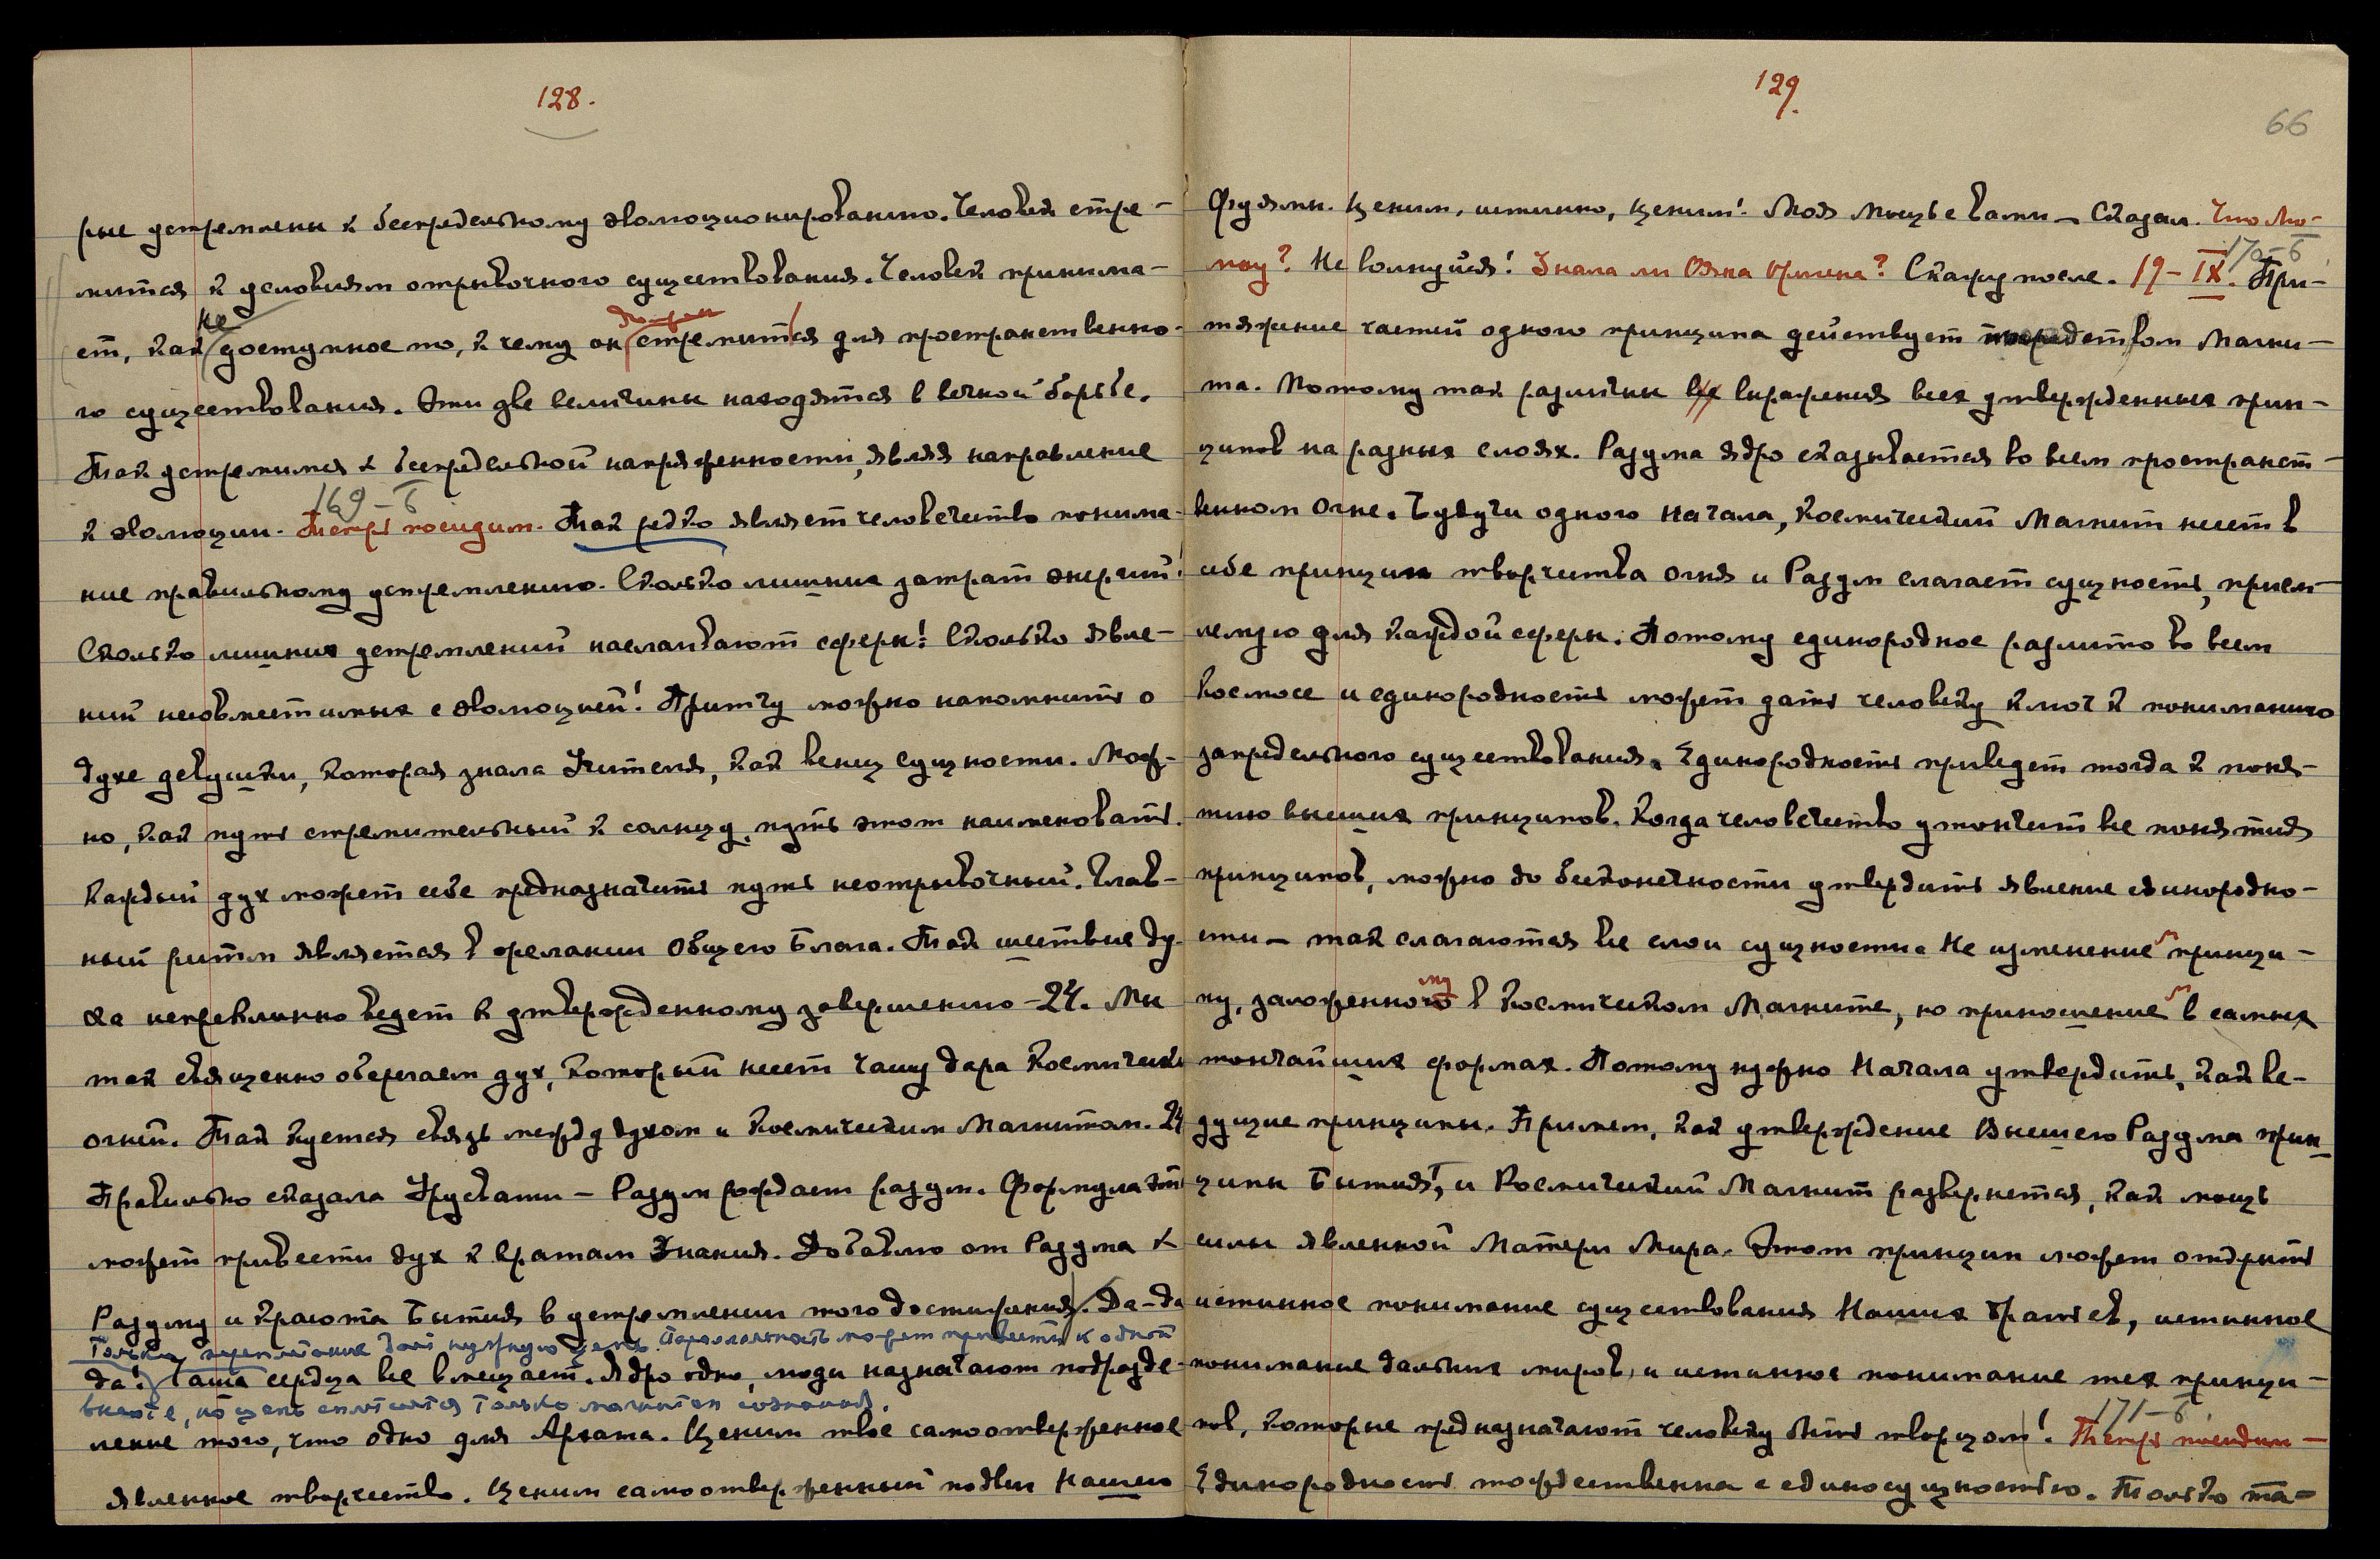 128.
рые устремлены к беспредельному эволюционированию. Человек стре-
мится к условиям отрывочного существования. Человек принима-
не должен
ет, как доступное то, к чему он стремится для пространственно-
го существования. Эти две величины находятся в вечной борьбе.
Так устремимся к беспредельной напряженности, являя направление
169-б
к эволюции. Теперь посидим. Так редко являет человечество понима-
ние правильному устремлению. Сколько лишних затрат энергии!
Сколько лишних устремлений наслаивают сферы! Сколько явле-
ний несовместимых с эволюцией! Притчу можно напомнить о
духе девушки, которая знала Учителя, как венец сущности. Мож-
но, как путь стремительный к солнцу, путь этот наименовать.
Каждый дух может себе предназначить путь неотрывочный. Глав-
ный ритм является в желании Общего Блага. Так шествие ду-
ха непрерывно ведет к утвержденному завершению - 24. Мы
так священно оберегаем дух, который несет чашу дара Космических
огней. Так куется связь между духом и Космическим Магнитом. 24
Правильно сказала Урусвати - Разум рождает разум. Формула эта
может привести дух к вратам Знания. Добавлю от Разума к
Разуму и красота Бытия в устремлении того достижения. Да-да
Только сочетание даст нужную цепь. Параллельность может привести к одной
да! Чаша сердца все вмещает. Ядро одно, люди назначают подразде-
высоте, но цепь сплетается только магнитом сознания.
ление того, что одно для Архата. Ценим твое самоотверженное
явленное творчество. Ценим самоотверженный подвиг Нашего
129.
66
Фуямы. Ценим, истинно, ценим! Моя мощь с вами - Сказал. Что Мо-
170-б
гу? Не волнуйся! Знала ли Ояна Оригена? Скажу после. 19-IX. При-
тяжение частей одного принципа действует посредством Магни-
та. Потому так различны все выражения всех утвержденных прин-
ципов на разных слоях. Разума ядро сказывается во всем пространст-
венном Огне. Будучи одного Начала, Космический Магнит несет в
себе принцип творчества огня и Разум слагает сущность, прием-
лемую для каждой сферы. Потому единородное разлито во всем
Космосе и единородность может дать человеку ключ к пониманию
запредельного существования. Единородность приведет тогда к поня-
тию высших принципов. Когда человечество утончит все понятия
принципов, можно до бесконечности утвердить явление единородно-
сти - так слагаются все слои сущности. Не изменение принци-
му
пу, заложенного в Космическом Магните, но приношение в самых
тончайших формах. Потому нужно Начала утвердить, как ве-
дущие принципы. Примем, как утверждение Высшего Разума прин-
ципы Бытия, и Космический Магнит развернется, как мощь
силы явленной Матери Мира. Этот принцип может открыть
истинное понимание существования Наших Братьев, истинное
понимание дальних миров, и истинное понимание тех принци-
171-б
пов, которые предназначают человеку быть творцом! Теперь посидим -
Единородность тождественна с единосущностью. Только та-